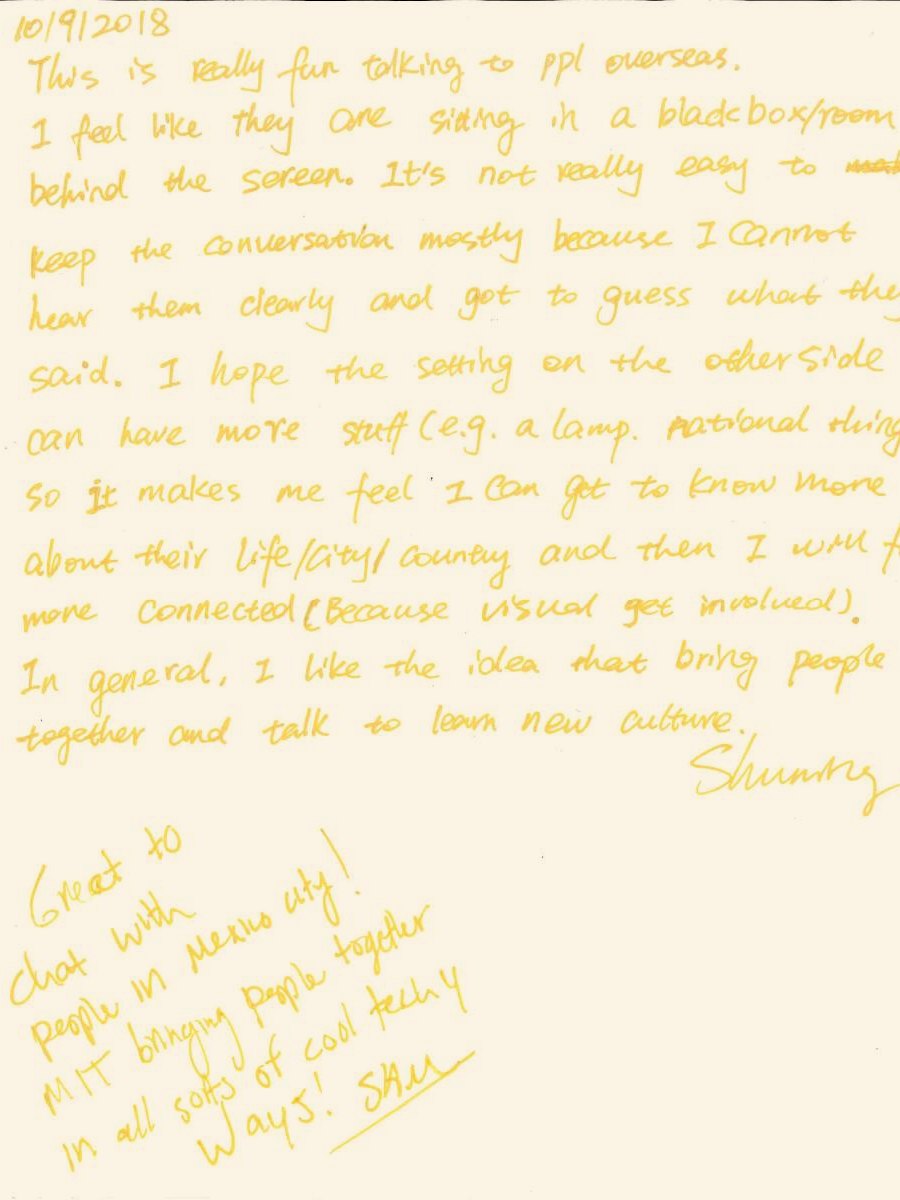 10/9/2018
This is really fun talking to ppl overseas.
I feel like they are sitting in a black box/room
behind the screen. It's not really easy to
keep the conversation mostly because I cannot
hear them clearly and got to guess what they
said. I hope the setting on the other side
can have more stuff (e.g. a lamp. national thing
so it makes me feel I can get to know more
about their life/city/country and then I will f
more connected (Because visual get involved).
In general, I like the idea that bring people
together and talk to learn new culture.
Shuming
Great to
chat with
people in Mexico city!
MIT bringing people together
in all sorts of cool techy
ways! SAM